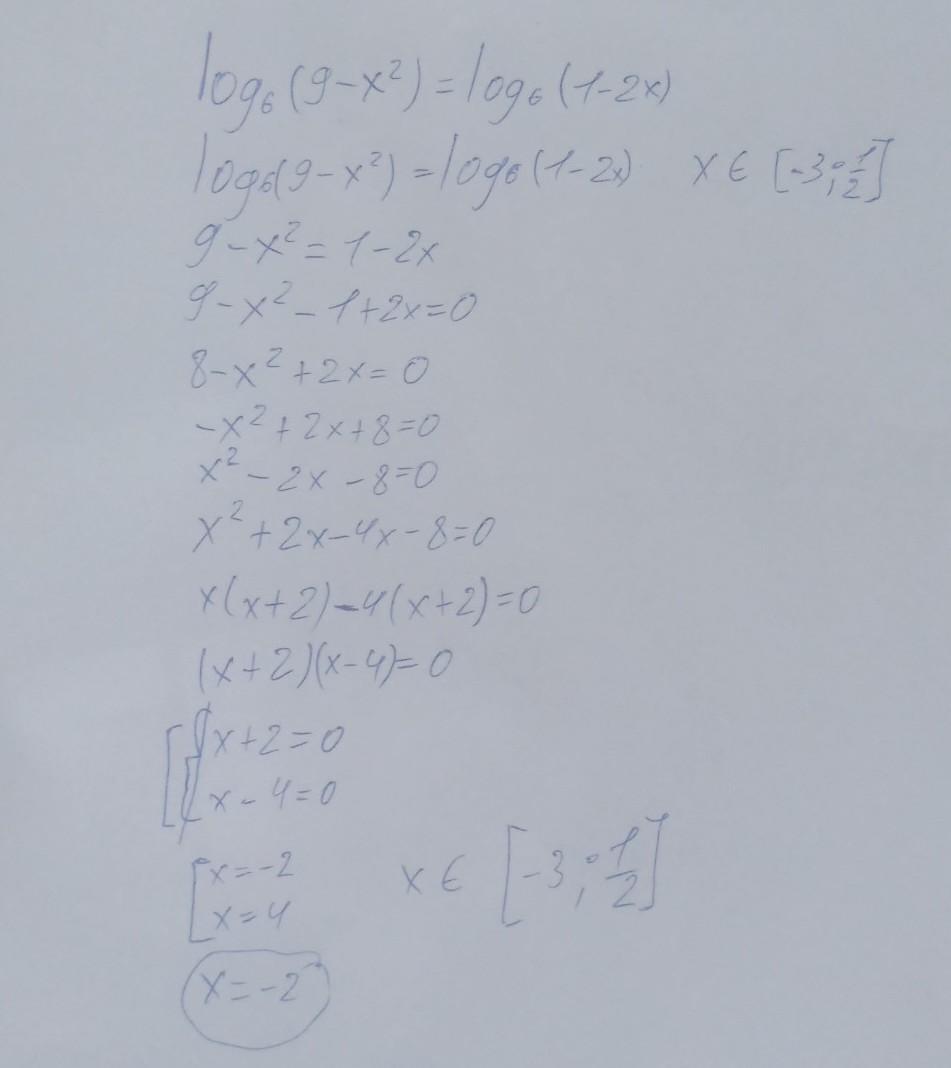 log₆(9-x²)=log₆(1-2x)
log₆(9-x²)=log₆(1-2x) x∈[-3;1/2]
9-x²=1-2x
9-x²-1+2x=0
8-x²+2x=0
-x²+2x+8=0
x²-2x-8=0
x²+2x-4x-8=0
x(x+2)-4(x+2)=0
(x+2)(x-4)=0
[x+2=0
x-4=0
[x=-2 x∈[-3;1/2]
x=4
x=-2